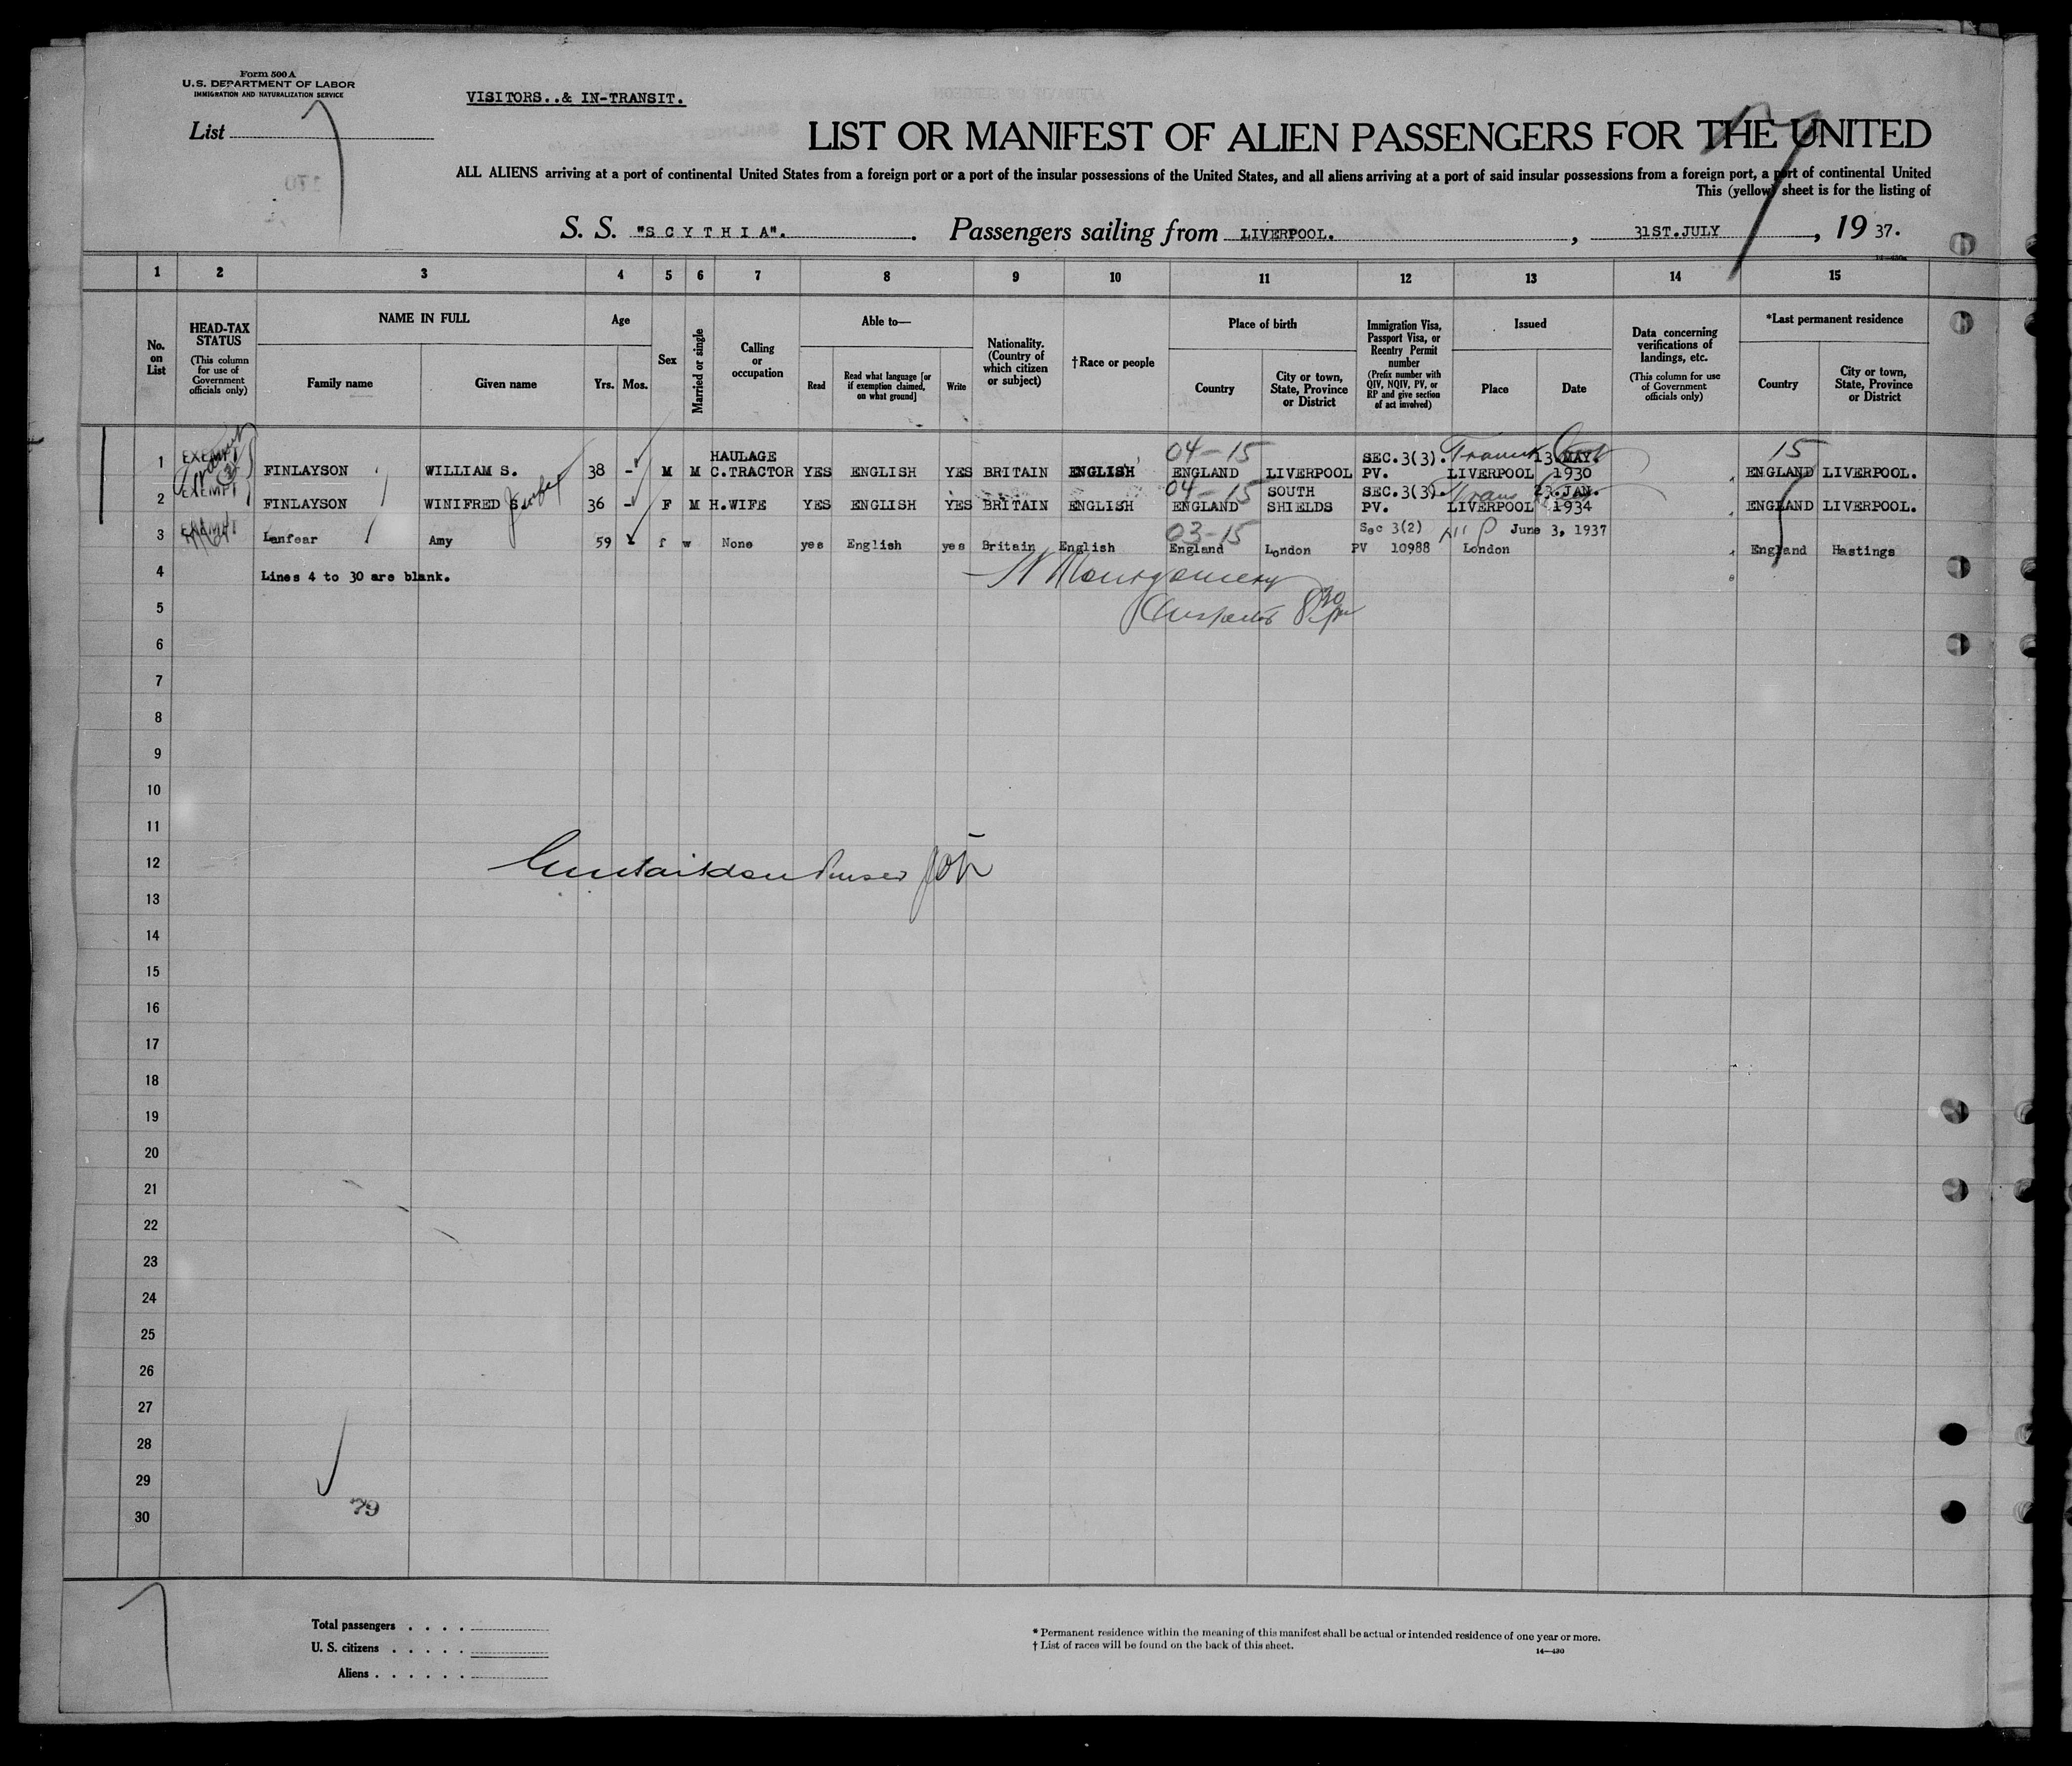 Form 500 A
U.S. DEPARTMENT OF LABOR
IMMIGRATION AND NATURALIZATION SERVICE
VISITORS..& IN-TRANSIT.
List
LIST OR MANIFEST OF ALIEN PASSENGERS FOR THE UNITED
ALL ALIENS arriving at a port of continental United States from a foreign port or a port of the insular possessions of the United States, and all aliens arriving at a port of said insular possessions from a foreign port, a port of continental United
This (yellow) sheet is for the listing of
S. S. "SCYTHIA". Passengers sailing from LIVERPOOL. , 31ST.JULY , 19 37.
1 2 3 4 5 6 7 8 9 10 11 12 13 14 15
No. on List
HEAD-TAX STATUS (This column for use of Government officials only)
NAME IN FULL
Family name Given name
Age
Yrs. Mos.
Sex
Married or single
Calling or occupation
Able to—
Read Read what language [or if exemption claimed, on what ground] Write
Nationality. (Country of which citizen or subject)
†Race or people
Place of birth
Country City or town, State, Province or District
Immigration Visa, Passport Visa, or Reentry Permit number (Prefix number with QIV, NQIV, PV, or RP and give section of act involved)
Issued
Place Date
Data concerning verifications of landings, etc. (This column for use of Government officials only)
*Last permanent residence
Country City or town, State, Province or District
EXEMPT HAULAGE 04-15 SEC.3(3). 13.MAY. 15
1 FINLAYSON WILLIAM S. 38 - M M C.TRACTOR YES ENGLISH YES BRITAIN ENGLISH ENGLAND LIVERPOOL PV. LIVERPOOL 1930 ENGLAND LIVERPOOL.
EXEMPT 04-15 SOUTH SEC.3(3). 23.JAN.
2 FINLAYSON WINIFRED S. 36 - F M H.WIFE YES ENGLISH YES BRITAIN ENGLISH ENGLAND SHIELDS PV. LIVERPOOL 1934 ENGLAND LIVERPOOL.
EXEMPT 03-15 Sec 3(2) June 3, 1937
3 Lanfear Amy 59 f w None yes English yes Britain English England London PV 10988 London England Hastings
4 Lines 4 to 30 are blank.
Montgomery
5 Inspector 8 30 pm
6
7
8
9
10
11
12
Purser
13
14
15
16
17
18
19
20
21
22
23
24
25
26
27
28
29
30
79
Total passengers . . . .
U. S. citizens . . . . .
Aliens . . . . . .
* Permanent residence within the meaning of this manifest shall be actual or intended residence of one year or more.
† List of races will be found on the back of this sheet.
14—430